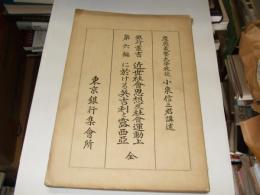 慶應義塾大學教授 小泉信三君講述
銀行叢書第六編
近世社會思想及社會運動上に於ける英吉利と露西亞 全
東京銀行集會所